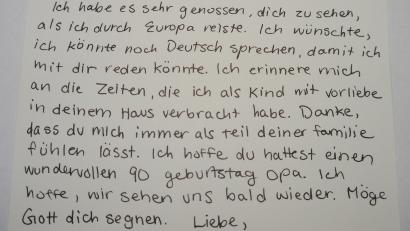 Ich habe es sehr genossen, dich zu sehen,
als ich durch Europa reiste. Ich wünschte,
ich könnte noch Deutsch sprechen, damit ich
mit dir reden könnte. Ich erinnere mich
an die Zeiten, die ich als Kind mit vorliebe
in deinem Haus verbracht habe. Danke,
dass du mich immer als teil deiner familie
fühlen lässt. Ich hoffe du hattest einen
wundervollen 90 geburtstag Opa. Ich
hoffe, wir sehen uns bald wieder. Möge
Gott dich segnen. Liebe,